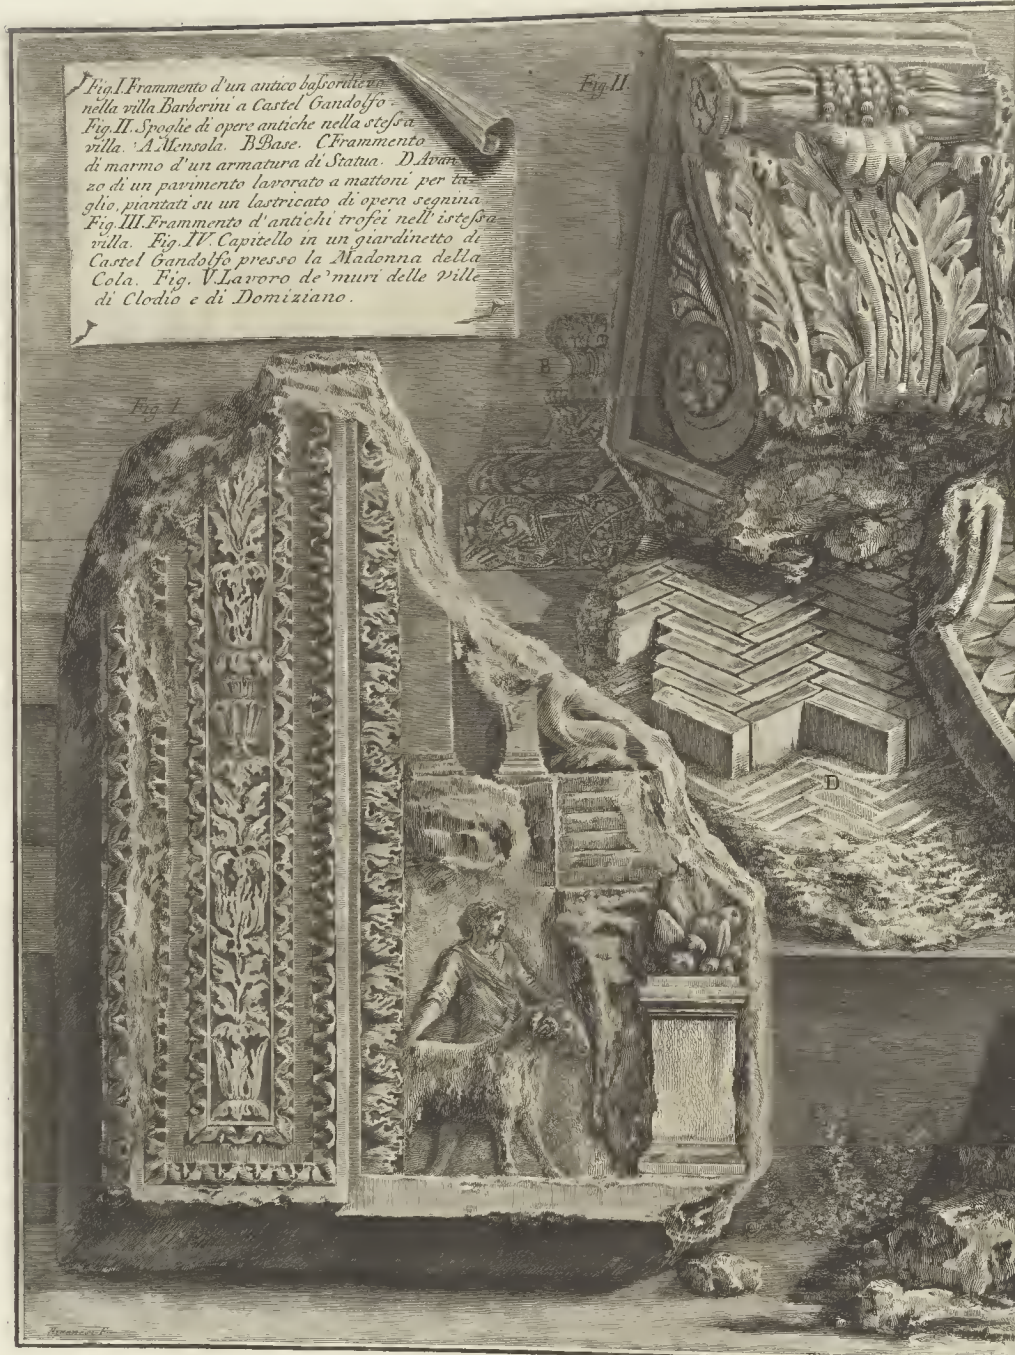 Fig. I. Frammento d'un antico bassorilievo
nella villa Barberini a Castel Gandolfo.
Fig. II. Spoglie di opere antiche nella stessa
villa. A Mensola. B Base. C Frammento
di marmo d'un armatura di Statua. D. Avan
zo di un pavimento lavorato a mattoni per ta-
glio, piantati su un lastricato di opera segnina
Fig. III. Frammento d'antichi trofei nell'istessa
villa. Fig. IV. Capitello in un giardinetto di
Castel Gandolfo presso la Madonna della
Cola. Fig. V. Lavoro de' muri delle ville
di Clodio e di Domiziano.
Fig. II.
B
Fig. I.
D